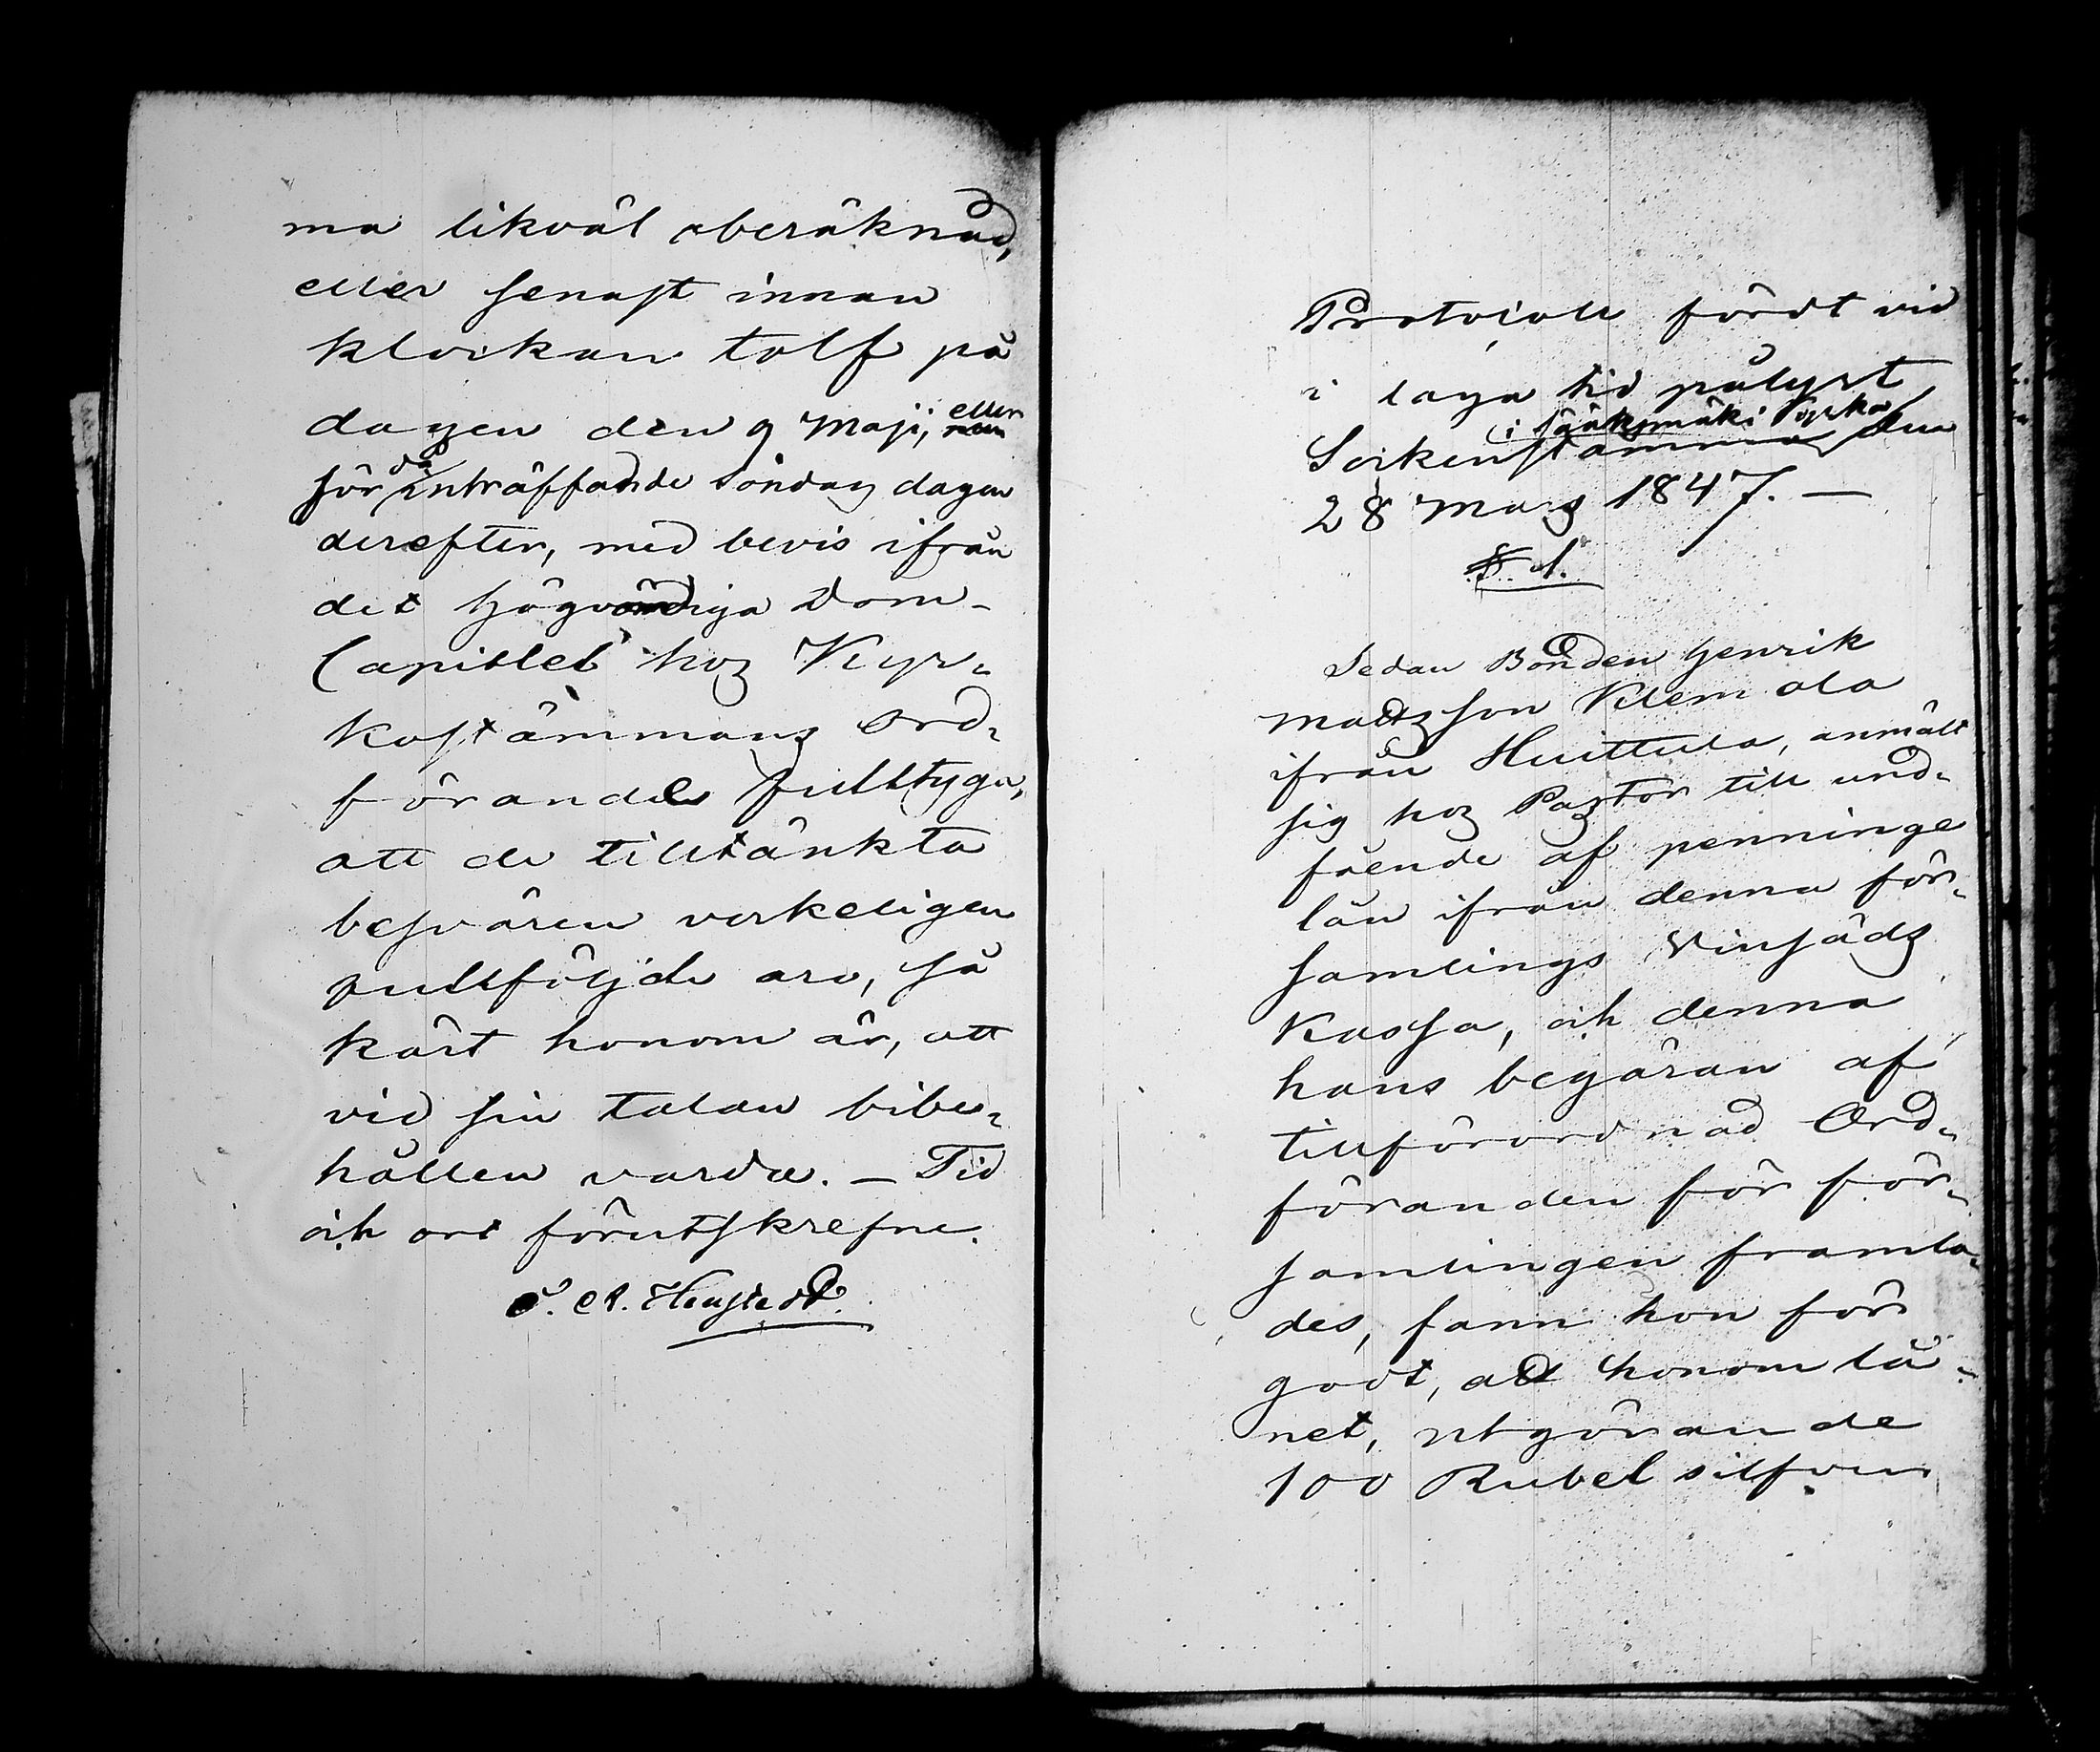 ma likväl oberäknad,
eller senast innan
klockan tolf på
dagen den 9 Maji, eller
för då inträffande Söndag dagen
derefter, med bevis ifrån
det Högvördiga Dom-
Capitlet hos Kyr-
kostämmans Ord-
förande fulltyga,
att de tilltänkta
besvären verkeligen
fullföljde äro, så
kärt honom är, att
vid sin talan bibe-
hållen varda. — Tid
och ort förutskrefne.
C. A. Henstedt.
Protocoll fördt vid
i laga tid pålyst,
i Sääksmäki Kyrka
Sockenstämma den
28 Mars 1847. —
§ 1.
Sedan Bonden Henrik
Mattsson Klemola
ifrån Huittula, anmält
sig hos Pastor till und-
fående af penninge
lån ifrån denna för-
samlings Vinsäds
Kassa, och denna
hans begäran af
tillförordnad Ord-
föranden för för-
samlingen framla-
des, fann hon för
godt, att honom lå-
net, utgörande
100 Rubel silfver